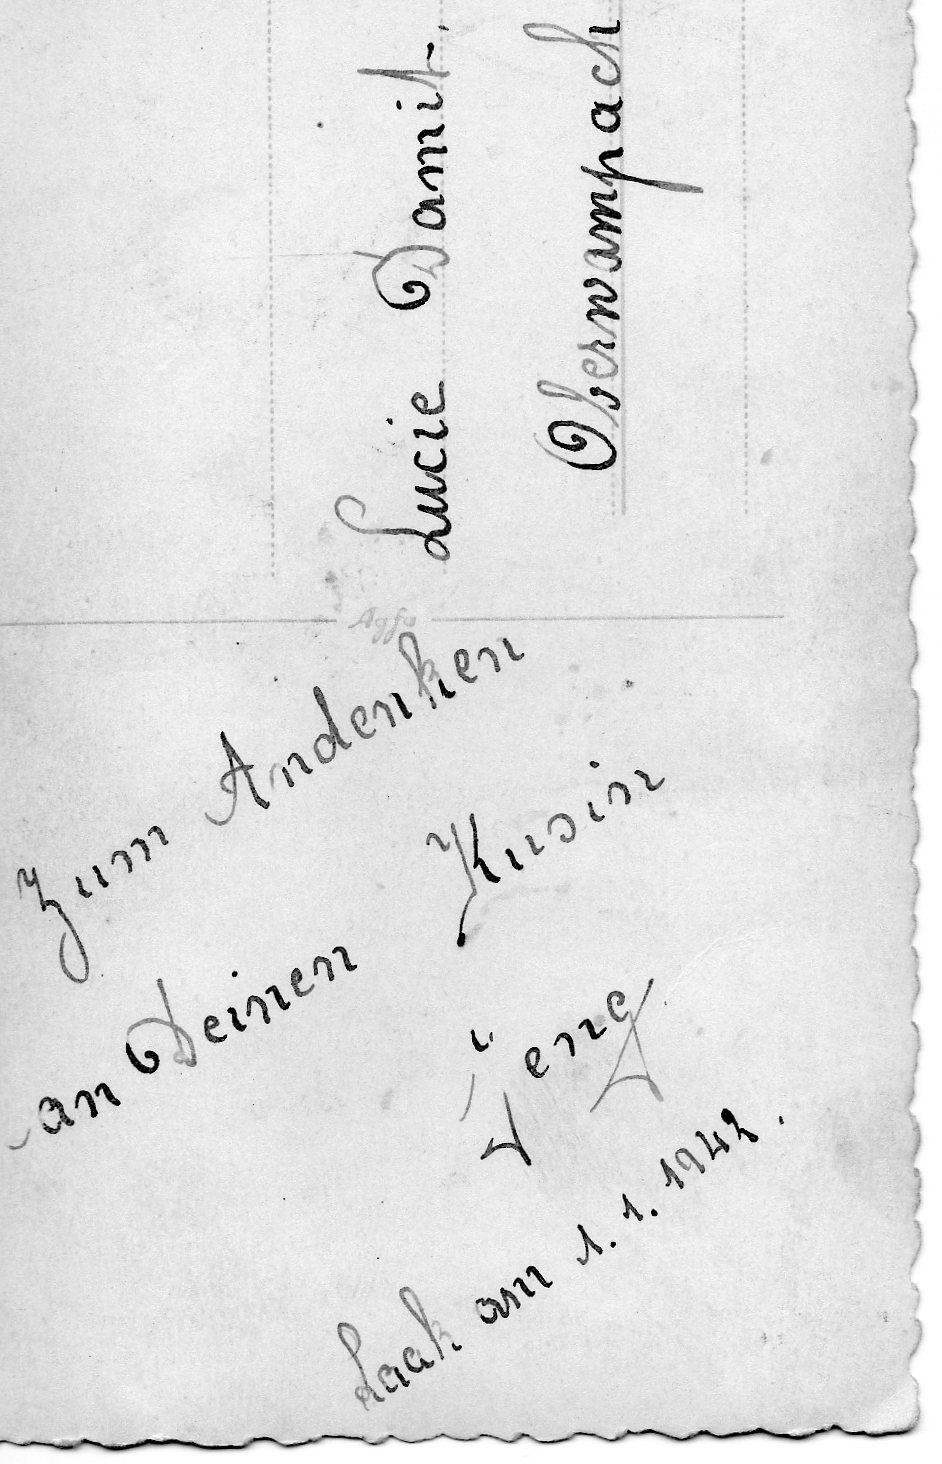 Zum Andenken
an Deinen Kusin
Jeng
Laak am 1.1.1942.
Agfa
Lucie Damit.
Oberwampach